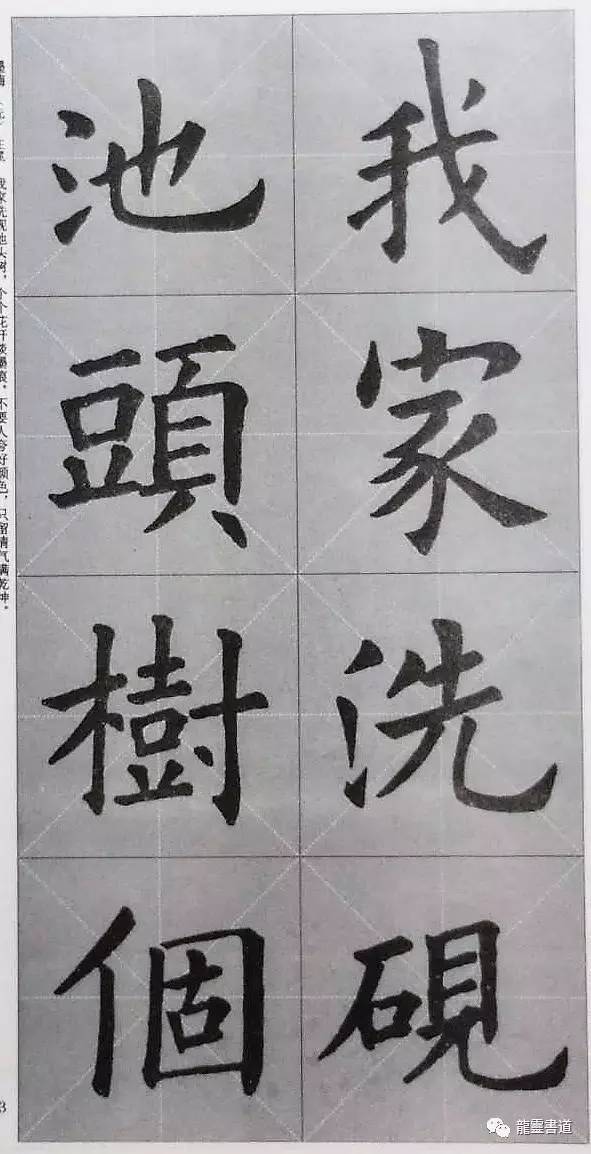 我家洗硯
池頭樹個
墨梅（元）王冕　我家洗砚池头树，个个花开淡墨痕。不要人夸好颜色，只留清气满乾坤。
3
龍靈書道